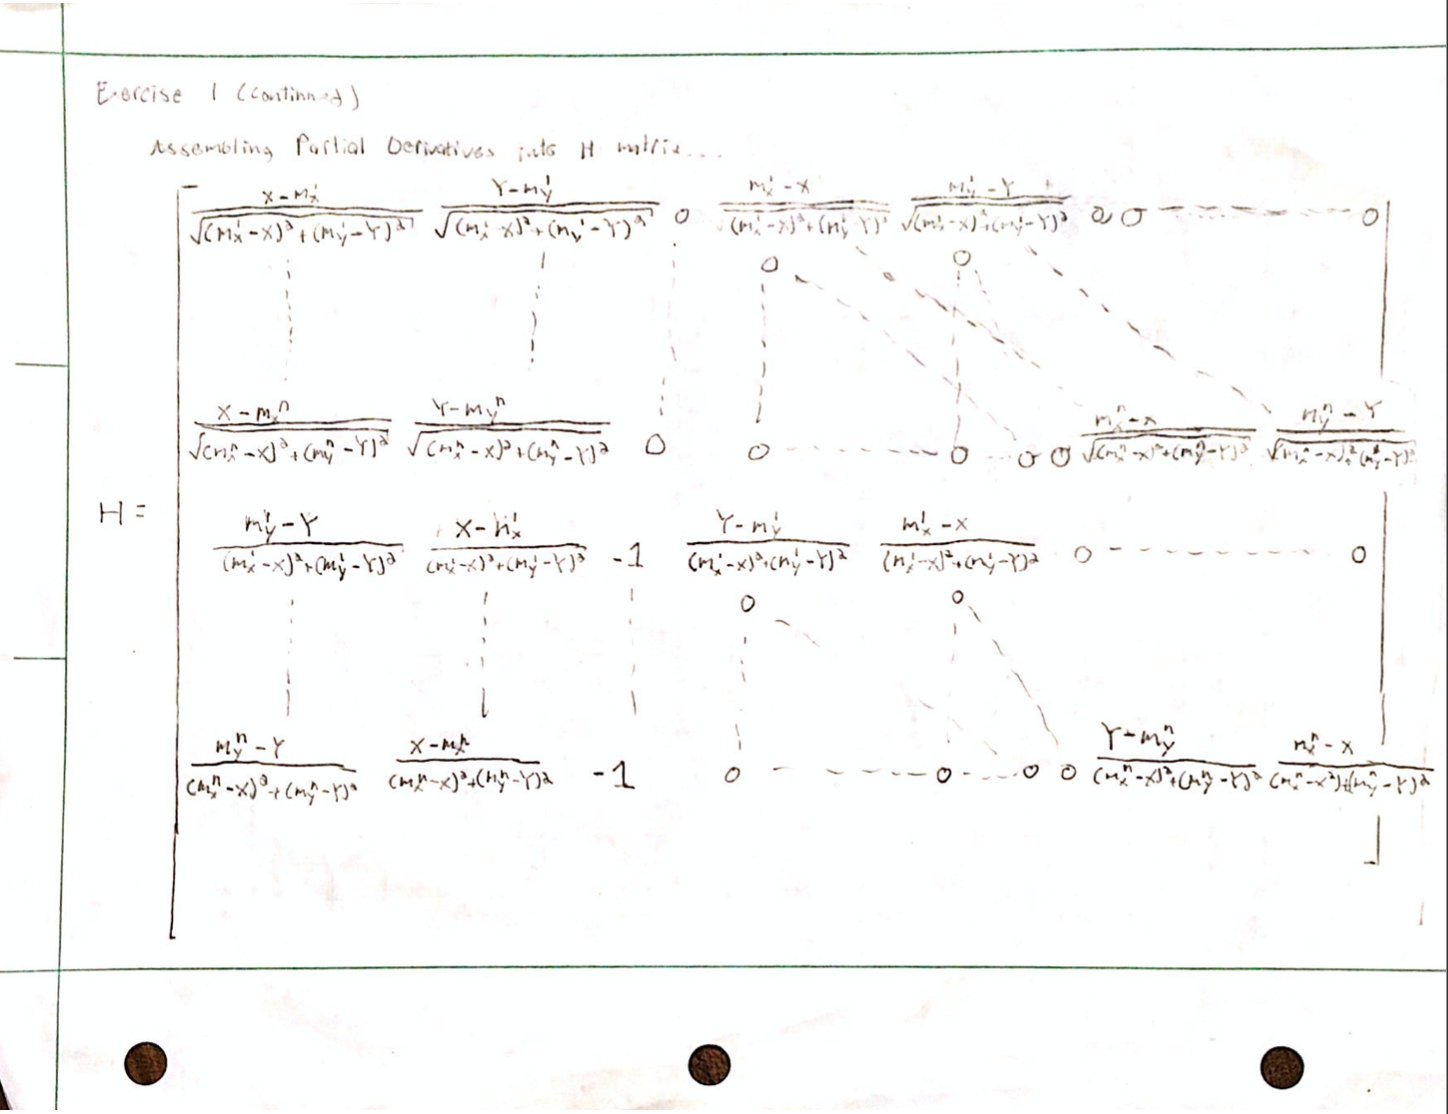 Exercise 1 (continued)
Assembling Partial Derivatives into H matrix...
H =
(x - m_x^1)/√((m_x^1 - x)^2 + (m_y^1 - Y)^2) (Y - m_y^1)/√((m_x^1 - x)^2 + (m_y^1 - Y)^2) 0 (m_x^1 - x)/√((m_x^1 - x)^2 + (m_y^1 - Y)^2) (m_y^1 - Y)/√((m_x^1 - x)^2 + (m_y^1 - Y)^2) 0 0 - - - - 0
0 0
(x - m_x^n)/√((m_x^n - x)^2 + (m_y^n - Y)^2) (Y - m_y^n)/√((m_x^n - x)^2 + (m_y^n - Y)^2) 0 0 - - - - 0 - - 0 0 (m_x^n - x)/√((m_x^n - x)^2 + (m_y^n - Y)^2) (m_y^n - Y)/√((m_x^n - x)^2 + (m_y^n - Y)^2)
(m_y^1 - Y)/((m_x^1 - x)^2 + (m_y^1 - Y)^2) (x - m_x^1)/((m_x^1 - x)^2 + (m_y^1 - Y)^2) -1 (Y - m_y^1)/((m_x^1 - x)^2 + (m_y^1 - Y)^2) (m_x^1 - x)/((m_x^1 - x)^2 + (m_y^1 - Y)^2) 0 - - - - 0
0 0
(m_y^n - Y)/((m_x^n - x)^2 + (m_y^n - Y)^2) (x - m_x^n)/((m_x^n - x)^2 + (m_y^n - Y)^2) -1 0 - - - - 0 - - - 0 0 (Y - m_y^n)/((m_x^n - x)^2 + (m_y^n - Y)^2) (m_x^n - x)/((m_x^n - x^2) + (m_y^n - Y)^2)